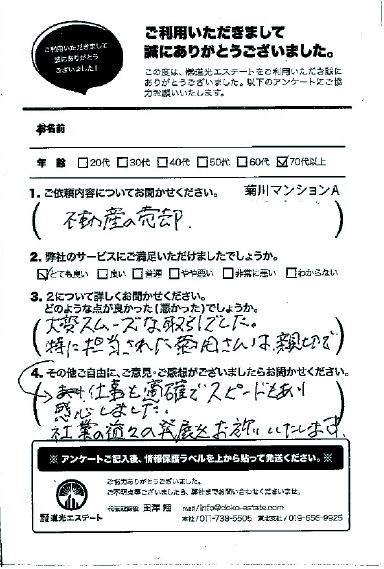 ご利用いただきまして
誠にありがとう
ございました!
ご利用いただきまして
誠にありがとうございました。
この度は、㈱道光エステートをご利用いただき誠に
ありがとうございました。以下のアンケートにご協
力お願いいたします。
お名前
年 齢 □20代 □30代 □40代 □50代 □60代 ☑70代以上
1. ご依頼内容についてお聞かせください。 菊川マンションA
不動産の売却.
2. 弊社のサービスにご満足いただけましたでしょうか。
☑とても良い □良い □普通 □やや悪い □非常に悪い □わからない
3. 2について詳しくお聞かせください。
どのような点が良かった(悪かった)でしょうか。
大変スムーズな取引でした。
特に担当された さんは親切で
4. その他ご自由に、ご意見・ご感想がございましたらお聞かせください。
仕事も適確でスピードもあり
感心しました.
社業の益々の発展をお祈りいたします.
※ アンケートご記入後、情報保護ラベルを上から貼って発送ください。※
ご協力ありがとうございました。
ご不明点等ございましたら、弊社までお問い合わせくださいませ。
道光エステート
代表取締役 mail/info@doko-estate.com
本社/011-738-5505 東北支社/019-656-9925